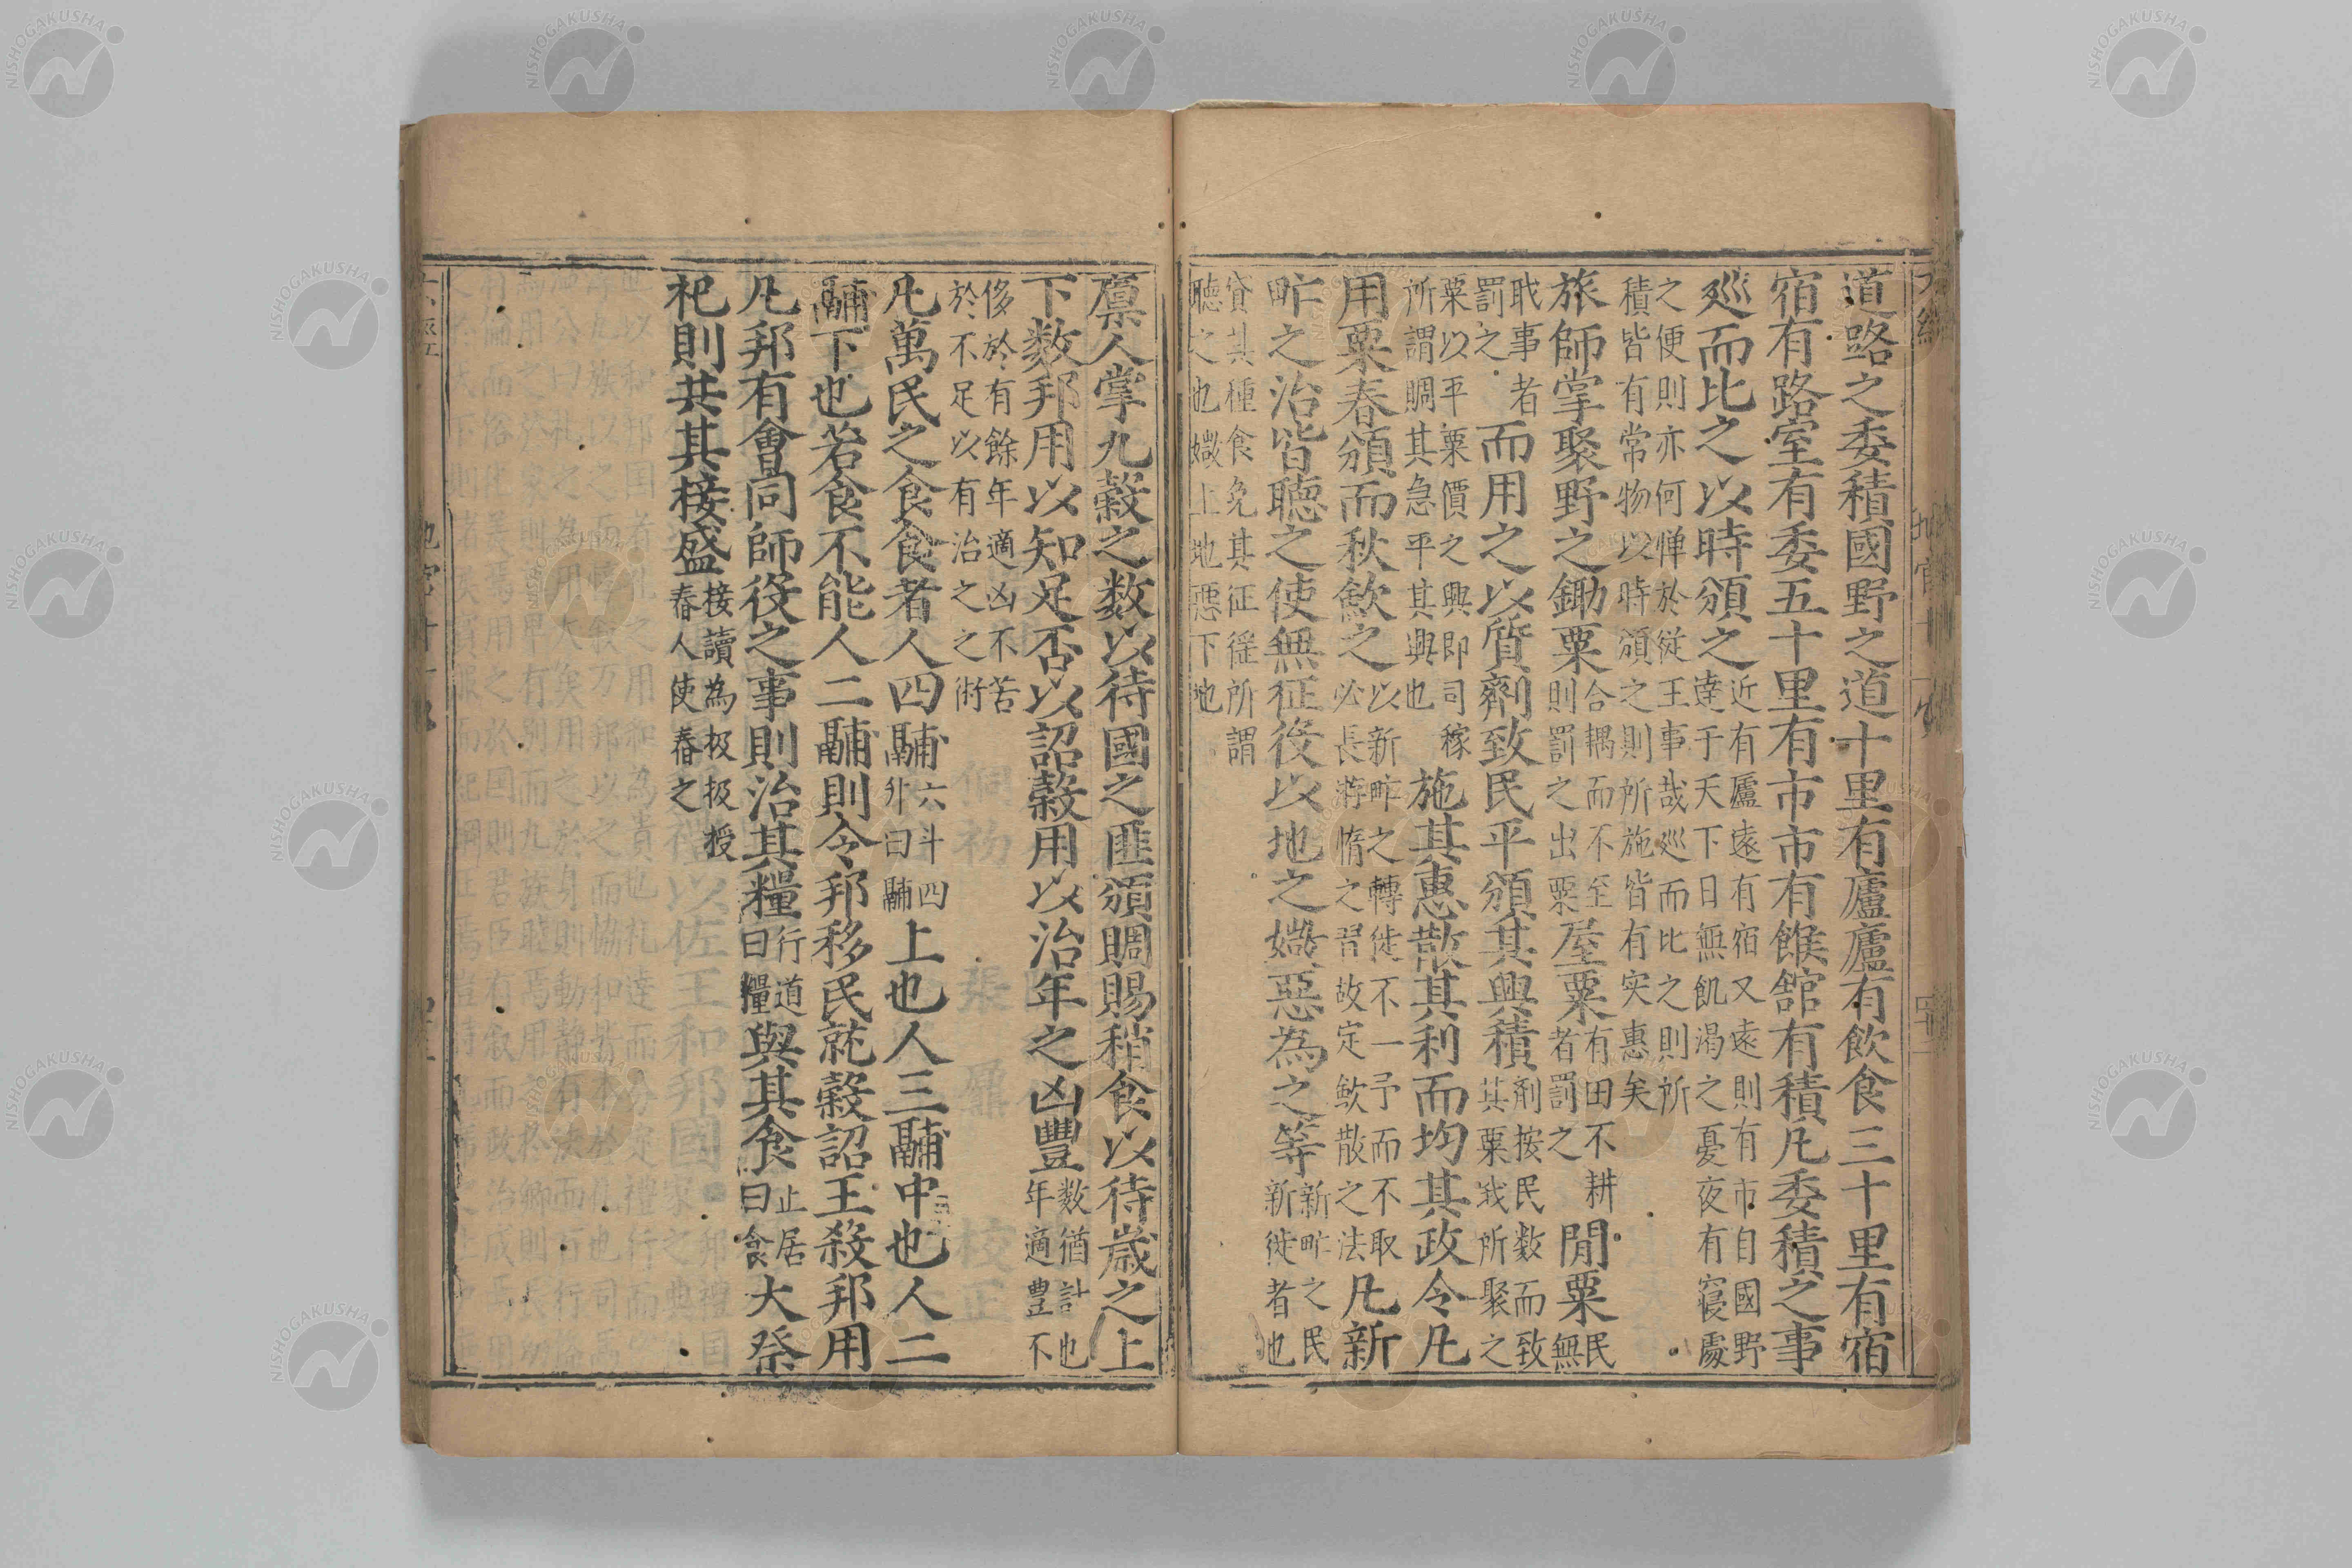 道路之委積國野之道十里有廬廬有飲食三十里有宿
宿有路室有委五十里有市市有餱舘有積凡委積之事
巡而比之以時頒之近有廬遠有宿又遠則有市自國野
達于天下日無飢渴之憂夜有寢處
之便則亦何憚於從王事哉巡而比之則所
積皆有常物以時頒之則所施皆有实惠矣
旅師掌聚野之鋤粟合耦而不至
則罰之出粟屋粟有田不耕
者罰之閒粟民
無
耿事者
罰之而用之以質劑致民平頒其興積劑按民数而致
其粟我所聚之
粟以平粟價之興即司稼
所謂賙其急平其興也施其惠散其利而均其政令凡
用粟春頒而秋歛之以新甿之轉徙不一予而不取
必長游惰之習故定歛散之法凡新
甿之治皆聽之使無征役以地之媺惡為之等新甿之民
新徙者也
貸其種食免其征徭所謂
聽之也媺上地惡下地
廪人掌九穀之数以待國之匪頒賙賜稍食以待歲之上
下数邦用以知足否以詔穀用以治年之凶豐数猶計也
年適豊不
侈於有餘年適凶不苦
於不足以有治之之術
凡萬民之食食者人四鬴六斗四
升曰鬴上也人三鬴中也人二
鬴下也若食不能人二鬴則令邦移民就穀詔王殺邦用
凡邦有會同師役之事則治其糧行道
曰糧與其食止居
曰食大祭
祀則共其接盛接讀為扱扱授
舂人使舂之
NISHOGAKUSHA